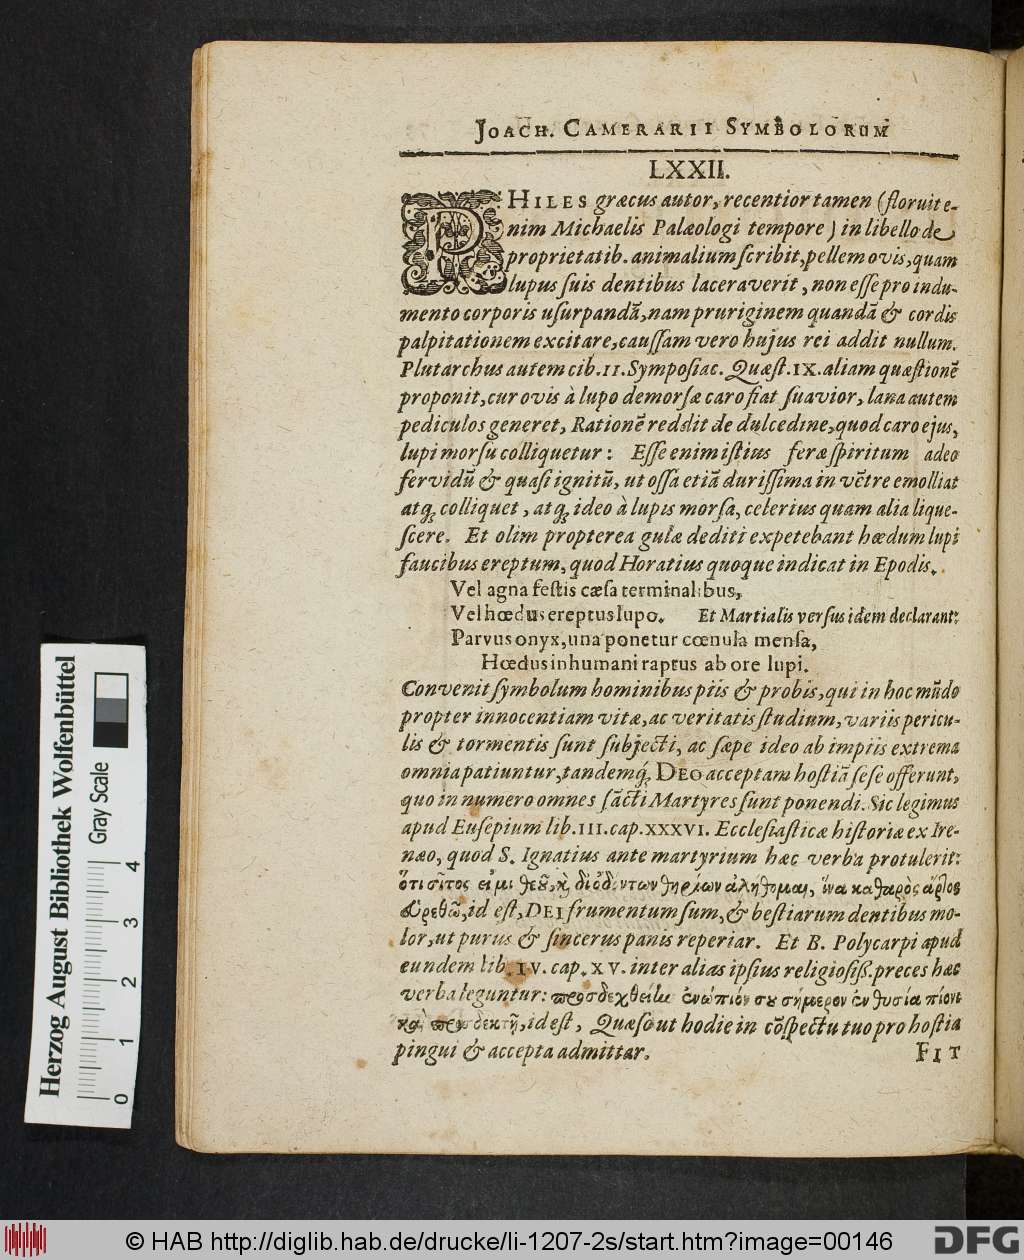 JOACH. CAMERARII SYMBOLORUM
LXXII.
PHILES græcus autor, recentior tamen (floruit e-
nim Michaelis Palæologi tempore) in libello de
proprietatib. animalium scribit, pellem ovis, quam
lupus suis dentibus laceraverit, non esse pro indu-
mento corporis usurpandã, nam pruriginem quandã & cordis
palpitationem excitare, caussam vero hujus rei addit nullum.
Plutarchus autem cib. II. Symposiac. Quæst. IX. aliam quæstionẽ
proponit, cur ovis à lupo demorsæ caro fiat suavior, lana autem
pediculos generet, Rationẽ reddit de dulcedine, quod caro ejus,
lupi morsu colliquetur: Esse enim istius feræ spiritum adeo
fervidũ & quasi ignitũ, ut ossa etiã durissima in vẽtre emolliat
atq; colliquet, atq; ideo à lupis morsa, celerius quam alia lique-
scere. Et olim propterea gulæ dediti expetebant hœdum lupi
faucibus ereptum, quod Horatius quoque indicat in Epodis.
Vel agna festis cæsa terminalibus,
Vel hœdus ereptus lupo. Et Martialis versus idem declarant:
Parvus onyx, una ponetur cœnula mensa,
Hœdus inhumani raptus ab ore lupi.
Convenit symbolum hominibus piis & probis, qui in hoc mũdo
propter innocentiam vitæ, ac veritatis studium, variis pericu-
lis & tormentis sunt subjecti, ac sæpe ideo ab impiis extrema
omnia patiuntur, tandemq; DEO acceptam hostiã sese offerunt,
quo in numero omnes sãcti Martyres sunt ponendi. Sic legimus
apud Eusepium lib. III. cap. XXXVI. Ecclesiasticæ historiæ ex Ire-
næo, quod S. Ignatius ante martyrium hæc verba protulerit:
ὅτι σῖτος εἰμι θεοῦ, κỳ δι᾽ ὀδόντων θηρίων ἀλήθομαι, ἵνα καθαρὸς ἄρτος
εὑρεθῶ, id est, DEI frumentum sum, & bestiarum dentibus mo-
lor, ut purus & sincerus panis reperiar. Et B. Polycarpi apud
eundem lib. IV. cap. XV. inter alias ipsius religiosiß. preces hæc
verba leguntur: προσδεχθείω ἐνώπιόν σου σήμερον ἐν θυσία πίονι
καὶ προσδεκτῇ, id est, Quæso ut hodie in cõspectu tuo pro hostia
pingui & accepta admittar. FIT
Herzog August Bibliothek Wolfenbüttel
Gray Scale
0 1 2 3 4
© HAB http://diglib.hab.de/drucke/li-1207-2s/start.htm?image=00146
DFG